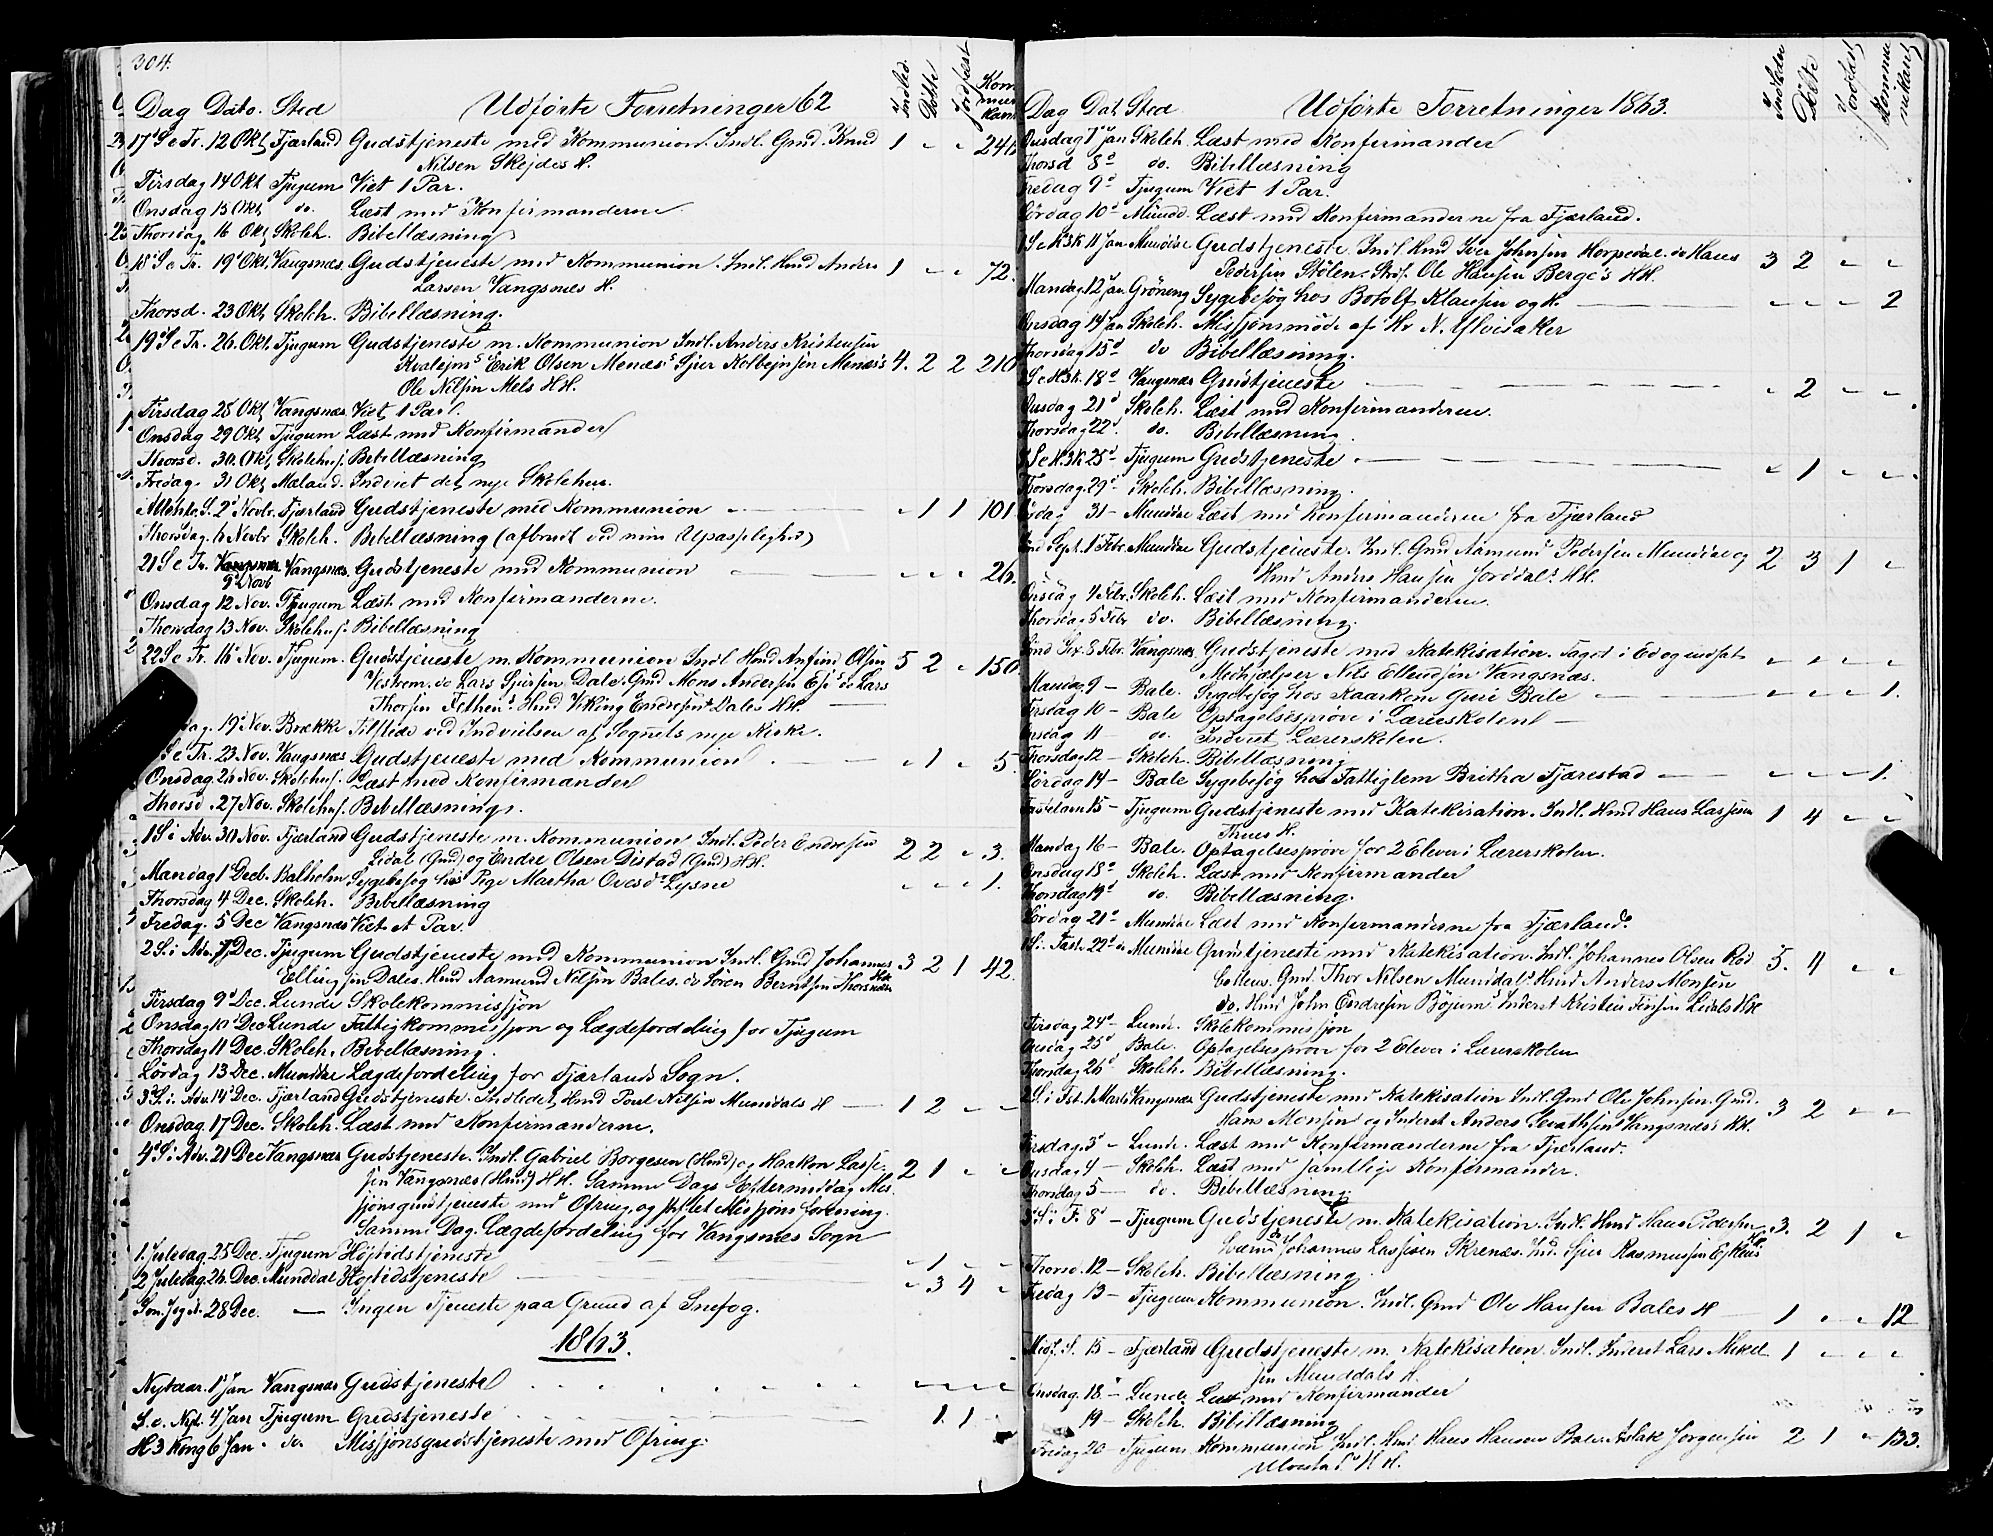 304.
Dag Dato. Sted Udførte Forretninger 62 Indled. Döbte Jordfæst Kommunikant
17 S e Tr. 12 Okt Fjærland Gudstjeneste med Kommunion. Indl. Gmd. Knud 1 - - 246
Nilsen Skejdes H.
Tirsdag 14 Okt Tjugum Viet 1 Par.
Onsdag 15 Okt do. Læst med Konfirmanderne
Thorsdag 16 Okt Skoleh. Bibellæsning
18 S e Tr. 19 Okt Vangsnæs. Gudstjeneste med Kommunion. Indl. Hmd Anders 1 - - 72.
Larsen Vangsnæs H.
Thorsd. 23 Okt Skoleh. Bibellæsning.
19 S e Tr. 26. Okt Tjugum Gudstjeneste m. Kommunion Indl. Anders Kristensen
Erik Olsen Menæs Sjur Kolbejnsen Menæs's 4. 2 2 210
Ole Nelsen Mels HH.
Tirsdag 28 Okt Vangsnæs Viet 1 Par.
Onsdag 29 Okt Tjugum Læst med Konfirmander
Thorsd. 30. Okt Skolehus. Bibellæsning
Fredag. 31 Okt Mæland. Indviet det nye Skolehus.
Allehlg. S. 2 Novbr. Fjærland Gudstjeneste med Kommunion - 1 1 101
Thorsdag. 6 Novbr Skoleh. Bibellæsning (afbrudt ved min Upasselighed)
21 S e Tr. 9 Novb Vangsnæs. Gudstjeneste med Kommunion - - - 26.
Onsdag 12 Nov. Tjugum Læst med Konfirmanderne.
Thorsdag 13 Nov. Skolehus. Bibellæsning
22 S e Tr. 16 Nov. Tjugum. Gudstjeneste m. Kommunion Indl Hmd Anfind Olsen 5 2 - 150
do Lars Sjursen Dale. Gmd Mons Andersen Ese do Lars
Thorsen Hmd Viking Endresen Dales HH.
19 Nov. Brække Tilstede ved Indvielsen af Sognets nye Kirke.
S e Tr. 23 Nov. Vangsnæs Gudstjeneste med Kommunion - 1 - 5
Onsdag. 26 Nov. Skolehus. Læst med Konfirmander
Thorsd. 27 Nov. Skolehus. Bibellæsning.
1 S i Adv. 30 Nov. Fjærland Gudstjeneste m. Kommunion Indl. Peder Endresen 2 2 - 3.
Lidal (Gmd) og Endre Olsen Distad (Gmd) HH.
Mandag 1 Decb. Balholm Sygebesøg hos Pige Martha Lysne - - - 1.
Thorsdag 4 Dec. Skoleh. Bibellæsning
Fredag. 5 Dec Vangsnæs Viet et Par.
2 S. i Adv. 7 Dec. Tjugum Gudstjeneste med Kommunion Indl. Gmd Johannes 3 2 1 42.
Ellingsen Dales. Hmd Aamund Nilsen Bales. do Sören Berntsen
Tirsdag 9 Dec. Lunde Skolekommissjon
Onsdag 10 Dec Lunde Fattigkommissjon og Lægdefordeling for Tjugum
Thorsdag 11 Dec. Skoleh. Bibellæsning.
Lördag 13 Dec. Munddal Lægdefordeling for Fjærlands Sogn.
3 S. i Adv. 14 Dec. Fjærland Gudstjeneste. Indledet Hmd Poul Nilsen Munddals H 1 2 - -
Onsdag. 17 Dec. Skoleh. Læst med Konfirmanderne.
4 S. i Adv. 21 Dec Vangsnæs Gudstjeneste. Indl. Gabriel Borgesen (Hmd) og Haakon Lasse- 2 1 - -
sen Vangsnæs (Hmd) HH. Samme Dags Eftermiddag Mis-
sjonsgudstjeneste med Ofring, og stiftet Missjonsforening.
Samme Dag. Lægdefordeling for Vangsnæs Sogn
1. Juledag. 25 Dec. Tjugum Höjtidstjeneste - 1 - -
2 Juledag. 26. Dec. Munddal Höjtidstjeneste - 3 4 -
28 Dec. Ingen Tjeneste paa Grund af Snefog.
1863.
Nytaar. 1 Jan Vangsnæs Gudstjeneste - - - -
S. e. Nyt. 4 Jan Tjugum Gudstjeneste 1. 1
H 3 Kong 6 Jan. do. Missjonsgudstjeneste med Ofring.
Dag Dat. Sted Udførte Forretninger 1863. Indleder Döbte Jordfæst Kommunikant
Onsdag 7 Jan Skoleh. Læst med Konfirmander
Thorsd 8 do. Bibellæsning
Fredag 9 Tjugum Viet 1 Par.
Lördag 10 Mundd. Læst med Konfirmanderne fra Fjærland.
1 S e H3K 11 Jan Munddal Gudstjeneste. Indl. Hmd Iver Johnsen Horpedal do Hans 3 2 - -
Pedersen Stölen Ole Hansen Berge's HH.
Mandag. 12 Jan. Gröneng Sygebesøg hos Botolf Klausen og H. - - - 2
Onsdag 14 Jan Skoleh. Missjonsmöde af Hr N. Ylvisaker
Thorsdag 15 do Bibellæsning.
S e H3K. 18 Vangsnæs Gudstjeneste - 2 - -
Onsdag 21 Skoleh. Læst med Konfirmanderne.
Thorsdag 22 do. Bibellæsning.
S e H3K 25 Tjugum Gudstjeneste - 1 - -
Thorsdag. 29 Skoleh. Bibellæsning.
31 - Munddal Læst med Konfirmanderne fra Fjærland
Sept. 1 Febr. Munddal Gudstjeneste. Indl. Gmd Aamund Pedersen Munddal og 2 3 1 -
Hmd Anders Hansen Jorddal's HH.
Onsdag 4 Febr. Skoleh. Læst med Konfirmanderne.
Thorsdag. 5 Febr do. Bibellæsning.
Sex. 8 Febr. Vangsnæs. Gudstjeneste med Katekisation. Taget i Ed og indsat - - - -
Medhjælper Nils Ellendsen Vangsnæs.
Mandag. 9 - Bale. Sygebesøg hos Kaarkone Guri Bale - - - 1.
Tirsdag 10 - Bale Optagelsesprøve i Lærerskolen
Onsdag 11 - do. Indviet Lærerskolen.
Thorsdag 12 - Skoleh. Bibellæsning
Lördag 14 - Bale Sygebesøg hos Fattiglem Britha Fjærestad - - - 1.
Fastelavn 15 - Tjugum Gudstjeneste med Katekisation. Indl. Hmd Hans Lassesen 1 4 - -
Thues H.
Mandag 16 - Bale. Optagelsesprøve for 2 Elever i Lærerskolen.
Onsdag 18 Skoleh. Læst med Konfirmander
Thorsdag 19 do. Bibellæsning.
Lördag 21 Munddal Læst med Konfirmanderne fra Fjærland.
1 S. i. Faste 22 Munddal Gudstjeneste med Katekisation. Indl. Johannes Olsen Röd 5. 4 - -
Gmd. Thor Nilsen Munddal Hmd Anders Monsen
do. Hmd John Endresen Böjum Inderst Kristen Lidals HH
Tirsdag 24 - Lunde. Skolekommissjon
Onsdag 25 Bale. Optagelsesprøve for 2 Elever i Lærerskolen
Thorsdag 26 Skoleh. Bibellæsning.
2 S. i Fst. 1 Marts Vangsnæs Gudstjeneste med Katekisation Indl. Gmd Ole Johnsen. Gmd. 3 2 - -
Hans Monsen og Inderst Anders Vangsnæs's HH.
Tirsdag. 3 - Lunde. Læst med Konfirmanderne fra Fjærland.
Onsdag 4 - Skoleh. Læst med samtlige Konfirmander.
Thorsdag 5 - do. Bibellæsning.
3 S. i F. 8 - Tjugum Gudstjeneste m. Katekisation. Indl. Hmd Hans Pedersen 3. 2 1 -
Johannes Lassesen Skrenæs. Ind. Sjur Rasmussen
Thorsd. 12 - Skoleh. Bibellæsning.
Fredag 13 - Tjugum Kommunion. Indl. Gmd Ole Hansen Bales H 1 - - 12
Midf. S. 15 - Fjærland Gudstjeneste m. Katekisation. Indl. Inderst Lars Mikel- 1 - - -
sen Munddals H.
Onsdag. 18 - Lunde Læst med Konfirmander
19 - Skoleh. Bibellæsning
Fredag 20 - Tjugum. Kommunion Indl. Hmd Hans Hansen Bale. Aslak Jörgensen 2 1 - 133.
HH.